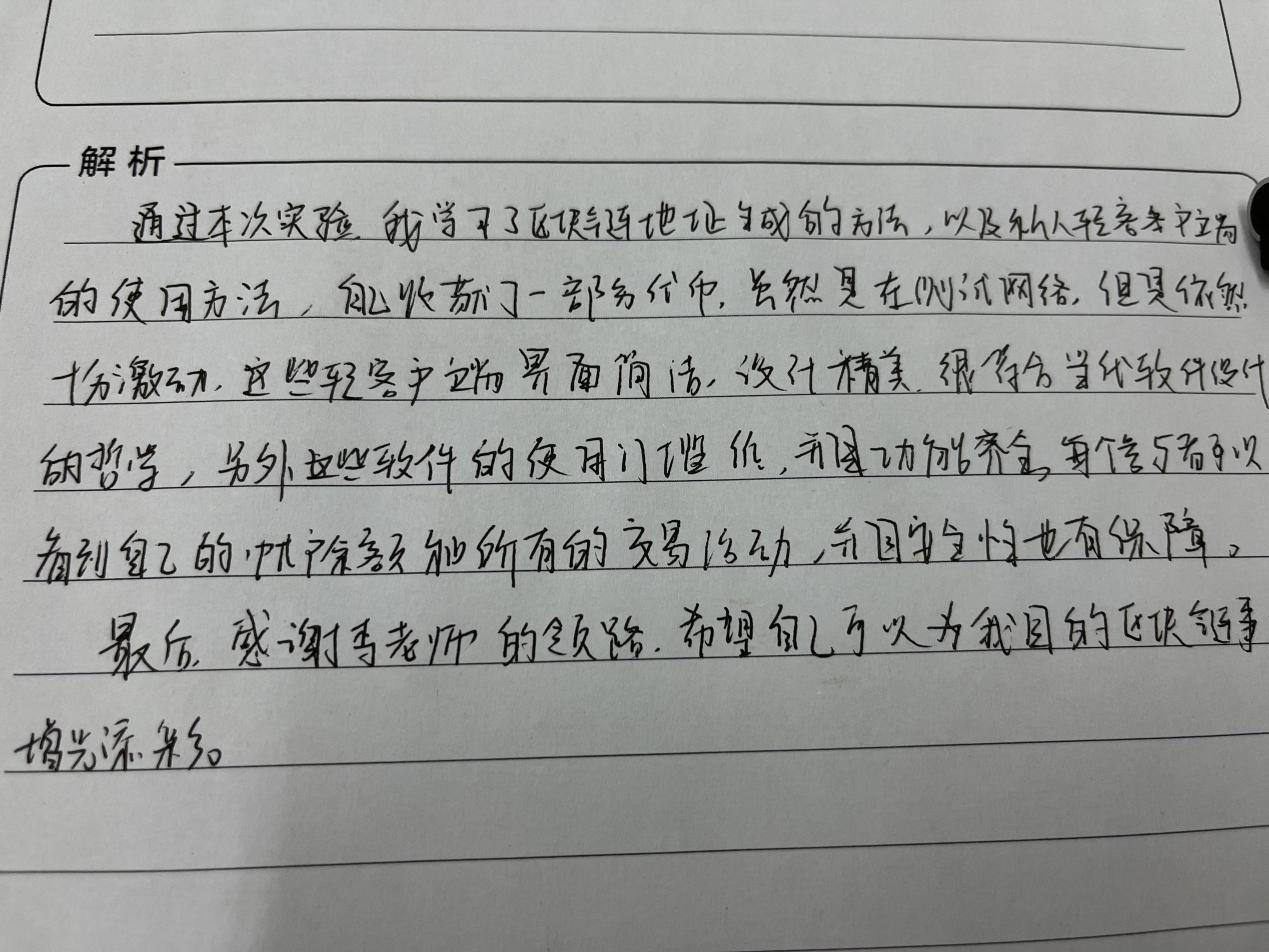 解析
通过本次实验,我学习了区块链地址生成的方法,以及私人轻客户端
的使用方法,自己收获了一部分代币,虽然是在测试网络,但是依然
十分激动,这些轻客户端界面简洁,设计精美,很符合当代软件设计
的哲学,另外这些软件的使用门槛低,并且功能齐全,每个参与者可以
看到自己的帐户余额和所有的交易活动,并且安全性也有保障。
最后,感谢李老师的领路,希望自己可以为我国的区块链事
增光添彩。